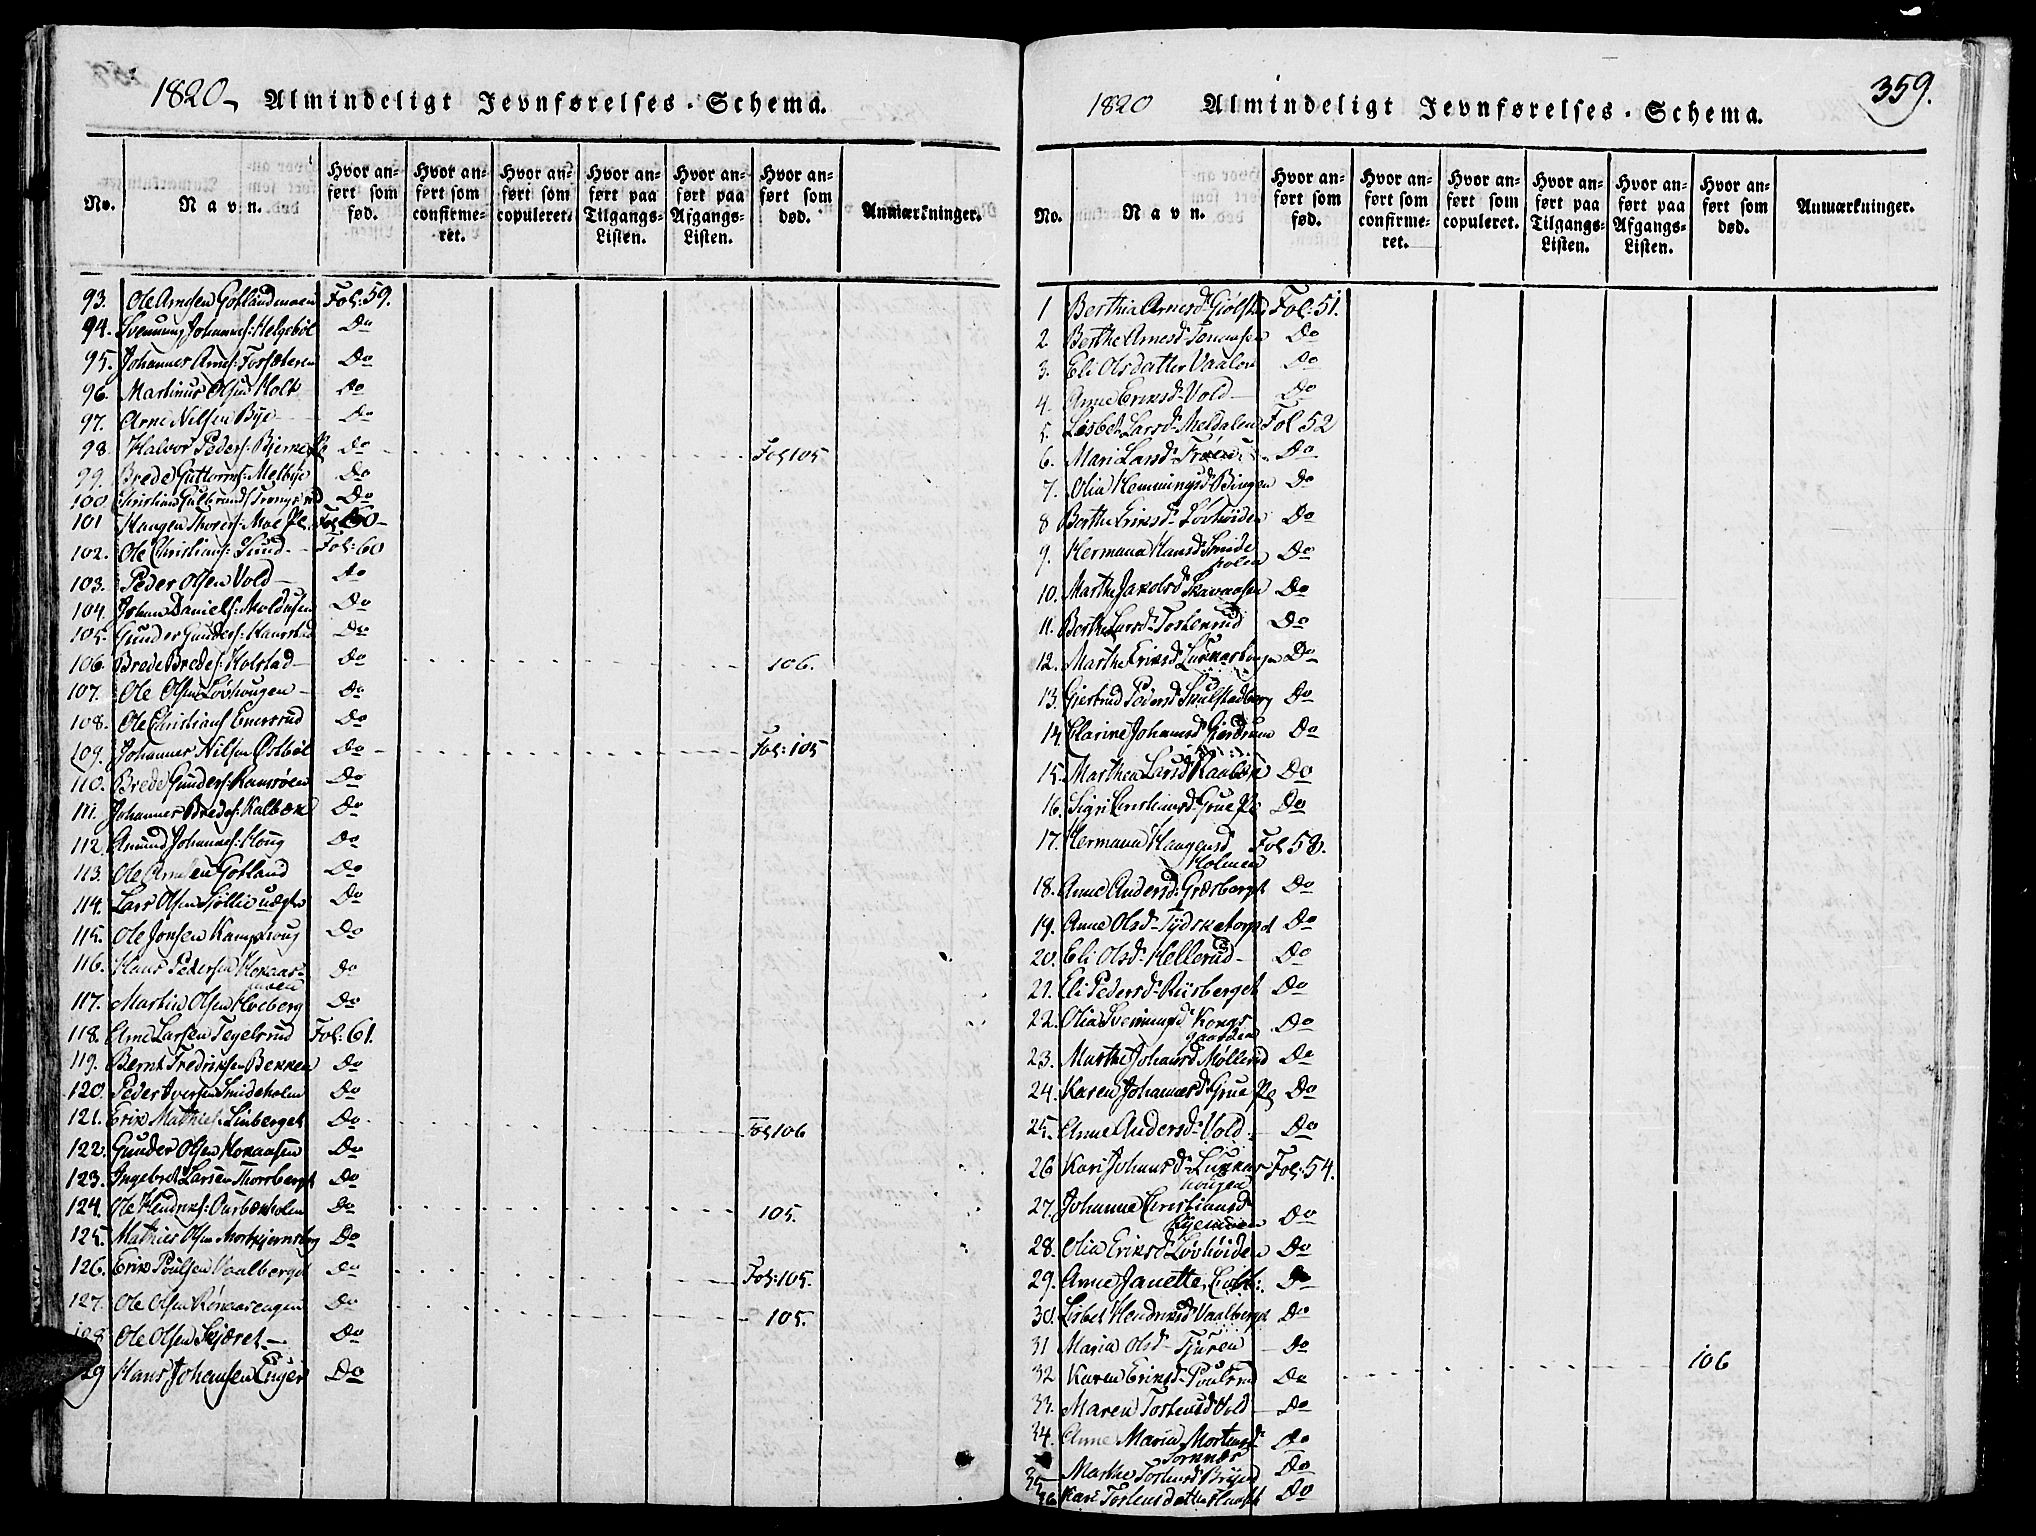 1820 Almindeligt Jevnførelses-Schema.
No. Navn. Hvor anført som fød. Hvor anført som confirmeret. Hvor anført som copuleret. Hvor anført paa Tilgangs-Listen. Hvor anført paa Afgangs-Listen. Hvor anført som død. Anmærkninger.
93. Ole Arnesen Gotland Fol: 59.
94. Svenning Johannes: Helgebøl Do
95. Johannes Arnes: Do
96. Martinus Olsen Holt Do
97. Arne Nilsen Bye Do
98. Halvor Peders: Do Fol 105
99. Brede Guttorms: Melbye Do
100 Christian Gulbrands: Do
101 Haagen Thores: Moe Pl. Fol 60
102. Ole Christians: Lund Fol: 60
103. Peder Olsen Vold Do
104. Johan Daniels: Do
105. Gunder Gunders: Do
106. Brede Bredes: Holstad Do 106.
107. Ole Olsen Løvhougen Do
108. Ole Christians: Enersrud Do
109. Johannes Nilsen Østbøl Do Fol: 105
110. Brede Gunders: Ramsøen Do
111. Johannes Bredes: Kalbæk Do
112. Amund Johannes: Houg Do
113. Ole Arnesen Gotland Do
114. Lars Olsen Do
115. Ole Jonsen Kamphoug Do
116. Hans Pedersen Do
117. Martin Olsen Hveberg Do
118. Arne Larsen Tegelsrud Fol: 61.
119. Bernt Fredriksen Bekken Do
120. Peder Iversen Smideholm Do
121. Erik Mathies: Linberget Do Fol 106
122. Gunder Olsen Hokaasen Do
123. Ingebret Larsen Thorsberget Do
124. Ole Hendriks: Do 105.
125. Mathies Olsen Do
126. Erik Poulsen Vaalberget Do Fol: 105.
127. Ole Olsen Do 105.
128. Ole Olsen Skjæret Do
129 Hans Johansen Enger Do
1820 Almindeligt Jevnførelses-Schema. 359.
No. Navn. Hvor anført som fød. Hvor anført som confirmeret. Hvor anført som copuleret. Hvor anført paa Tilgangs-Listen. Hvor anført paa Afgangs-Listen. Hvor anført som død. Anmærkninger.
1 Berthia Arnesd. Fol: 51.
2. Berthe Arnesd. Do
3. Eli Olsdatter Vaalen Do
4. Anne Eriksd. Vold Do
5. Lisbet Larsd. Meldalen Fol 52
6. Mari Larsd. Do
7. Olia Hemmingsd. Bingen Do
8 Berthe Eriksd. Løvhøiden Do
9. Hermana Hansd. Smideholm Do
10. Marthe Jakobsd. Do
11. Berthe Larsd. Tostenrud Do
12. Marthe Eriksd. Do
13. Giertrud Pedersd. Do
14. Clarine Johansd. Gierdrum Do
15. Marthea Larsd. Do
16. Sigri Christiansd. Grue Pl. Do
17. Hermana Haagensd. Holmen Fol 53.
18. Anne Andersd. Græsberget Do
19. Anne Olsd. Tydsketorpet Do
20. Eli Olsd. Hellerud Do
21. Eli Pedersd. Riisberget Do
22. Olia Svenningsd. Kongsgaarden Do
23. Marthe Johansd. Møllerud Do
24. Karen Johannesd. Grue Pl. Do
25. Anne Andersd. Vold Do
26 Kari Johansd. Fol: 54.
27. Johanne Christiansd. Do
28. Olia Eriksd. Løvhøiden Do
29. Anne Janette Do
30. Lisbet Hendriksd. Vaalberget Do
31 Maria Olsd. Tjuren Do
32 Karen Eriksd. Poulsrud Do 106
33. Maren Tostensd. Vold Do
34. Anne Maria Mortensd. Do
35 Marthe Tostensd. Do
36 Kari Tostensdatter Do